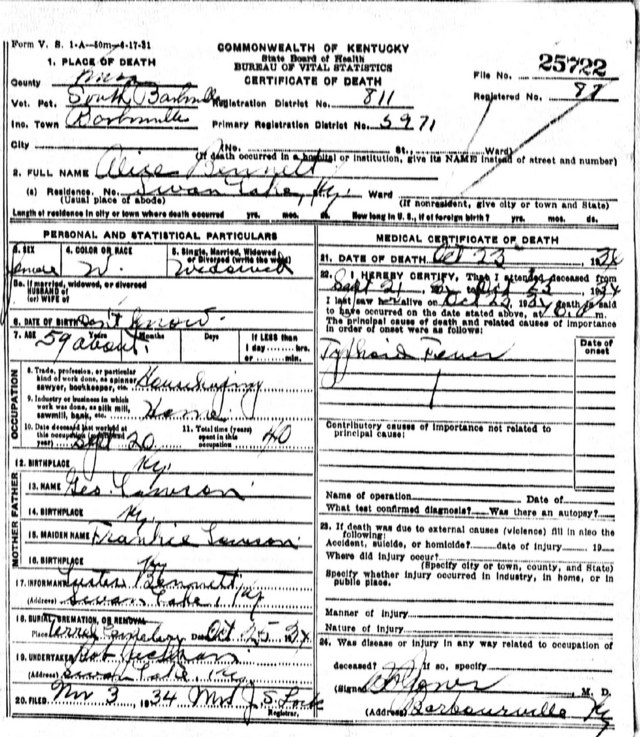 Form V. S. 1-A—50m—6-17-31
COMMONWEALTH OF KENTUCKY
State Board of Health
BUREAU OF VITAL STATISTICS
CERTIFICATE OF DEATH
1. PLACE OF DEATH
County
File No. 25722
Vot. Pct. South Barbourville Registration District No. 811
Registered No. 87
Inc. Town Barbourville Primary Registration District No. 5971
City (No. St., Ward)
(If death occurred in a hospital or institution, give its NAME instead of street and number)
2. FULL NAME Alice Bennett
(a) Residence. No. Swan Lake, Ky. Ward
(Usual place of abode) (If nonresident, give city or town and State)
Length of residence in city or town where death occurred yrs. mos. ds. How long in U. S., if of foreign birth? yrs. mos. ds.
PERSONAL AND STATISTICAL PARTICULARS
3. SEX 4. COLOR OR RACE 5. Single, Married, Widowed or Divorced (write the word)
W. Widowed
5a. If married, widowed, or divorced
HUSBAND of
(or) WIFE of
6. DATE OF BIRTH Don't know.
7. AGE Years Months Days If LESS than
59 about. 1 day hrs.
or min.
OCCUPATION
8. Trade, profession, or particular
kind of work done, as spinner,
sawyer, bookkeeper, etc.
9. Industry or business in which
work was done, as silk mill,
sawmill, bank, etc. Home
10. Date deceased last worked at
this occupation
year) Sept 20
11. Total time (years)
spent in this
occupation 40
12. BIRTHPLACE Ky.
FATHER
13. NAME Geo. Lawson
14. BIRTHPLACE Ky.
MOTHER
15. MAIDEN NAME Frankie Lawson
16. BIRTHPLACE Ky
17. INFORMANT Bennett
(Address) Swan Lake, Ky
18. BURIAL, CREMATION, OR REMOVAL
Place Cemetery Date Oct 25 1934
19. UNDERTAKER
(Address) Swan Lake, Ky
20. FILED Nov 3 1934 Mrs J. S. Lock
Registrar.
MEDICAL CERTIFICATE OF DEATH
21. DATE OF DEATH Oct 23 1934
22. I HEREBY CERTIFY, That I attended deceased from
Sept 21 1934
I last saw her alive on Oct 1934 death is said
to have occurred on the date stated above, at m.
The principal cause of death and related causes of importance
in order of onset were as follows:
Date of
onset
Typhoid Fever
Contributory causes of importance not related to
principal cause:
Name of operation Date of
What test confirmed diagnosis? Was there an autopsy?
23. If death was due to external causes (violence) fill in also the
following:
Accident, suicide, or homicide? date of injury 19
Where did injury occur?
(Specify city or town, county, and State)
Specify whether injury occurred in industry, in home, or in
public place.
Manner of injury
Nature of injury
24. Was disease or injury in any way related to occupation of
deceased? If so, specify
(Signed) M. D.
(Address) Barbourville Ky